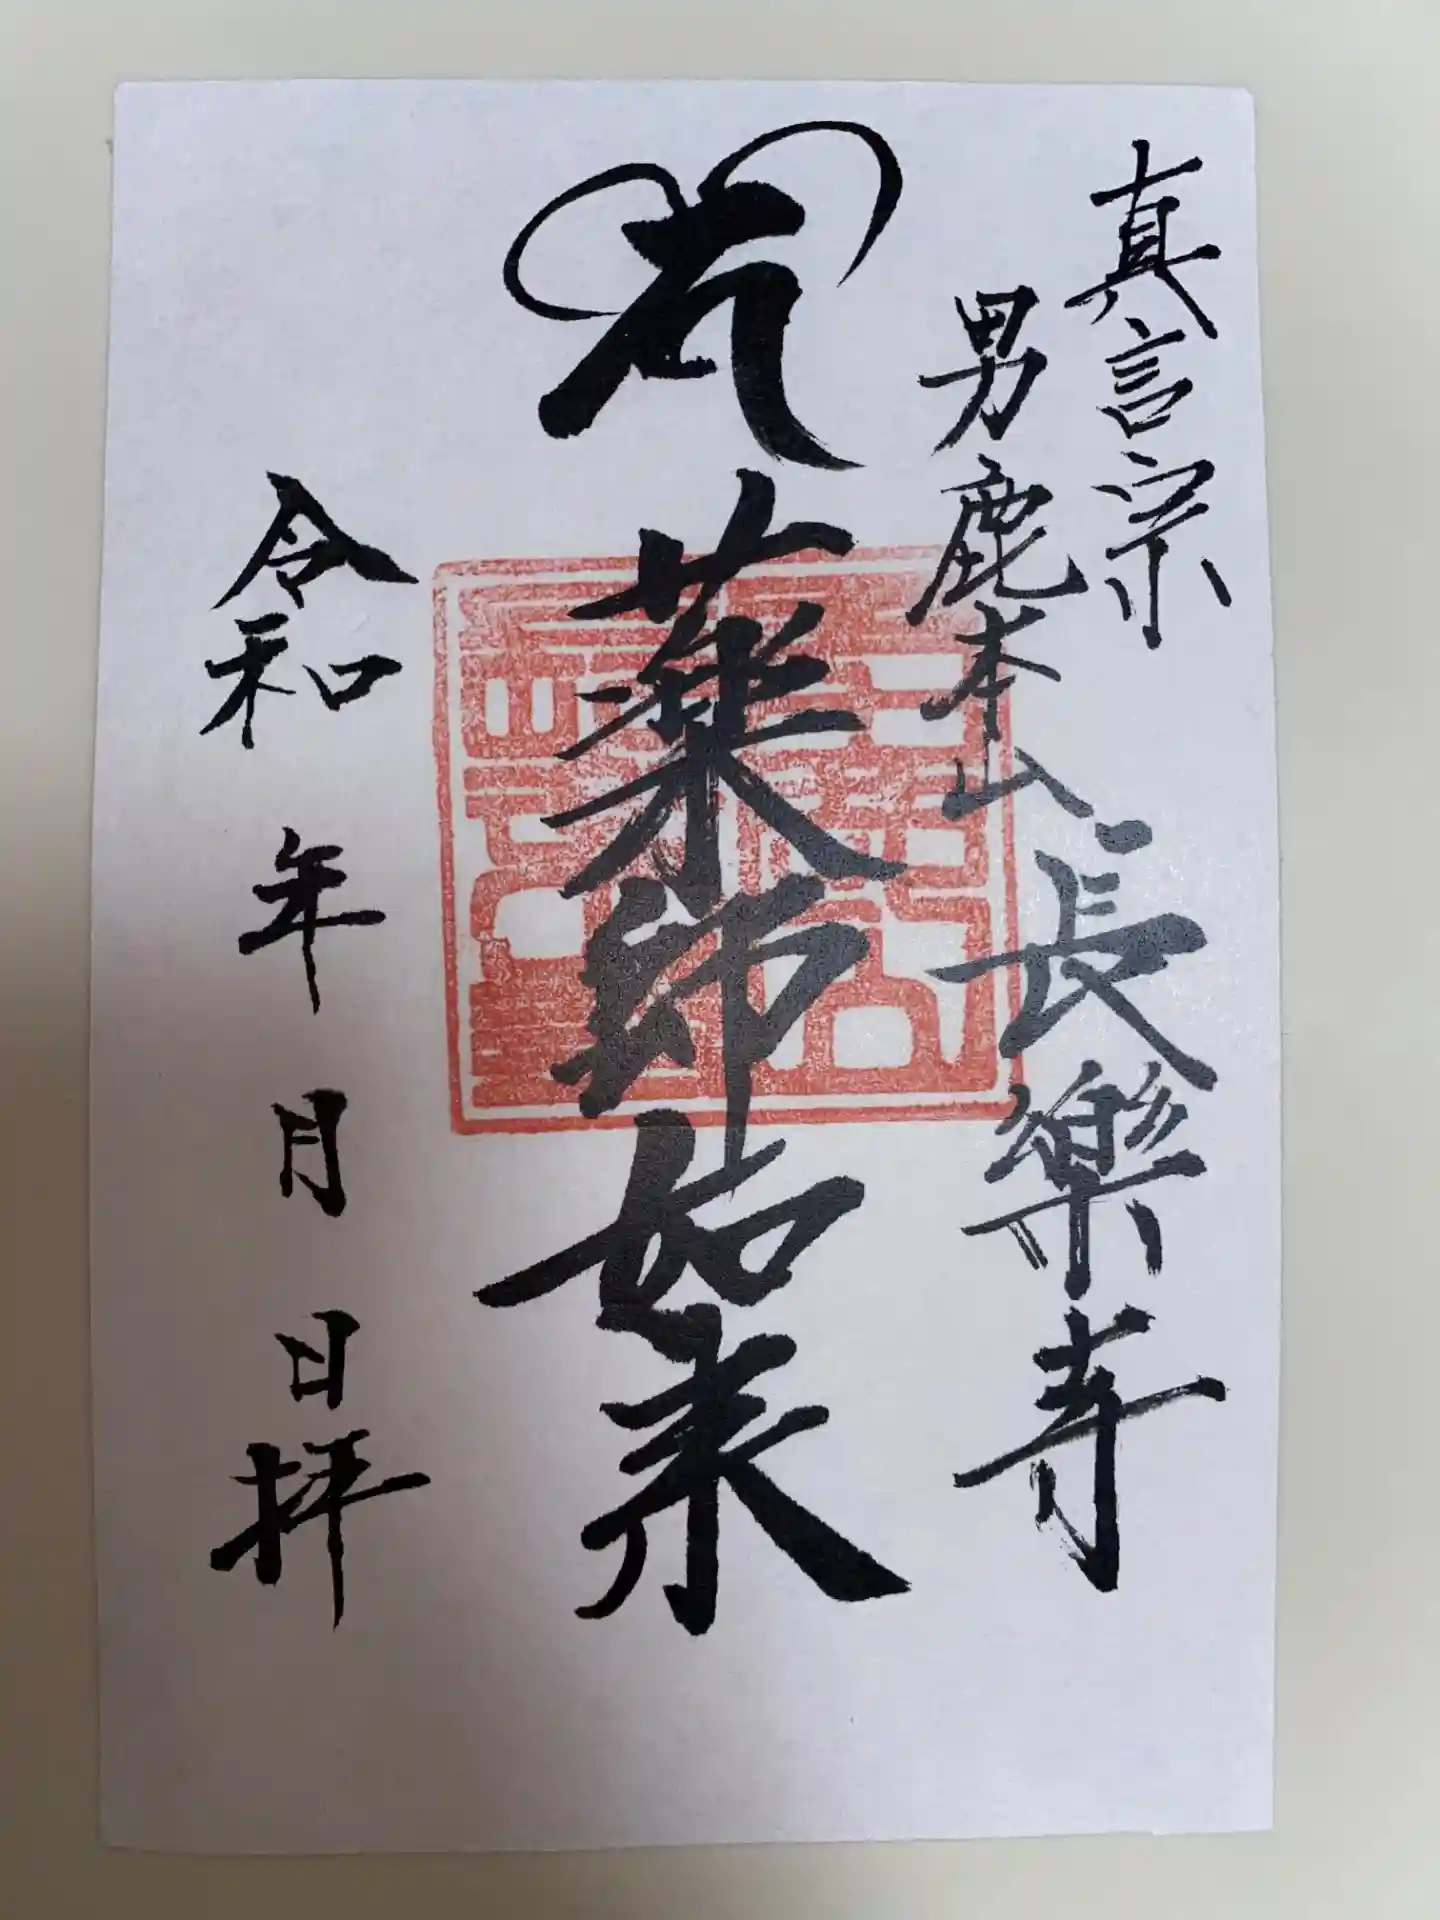 真言宗
男鹿本山 長樂寺
薬師如来
令和 年 月 日 拝